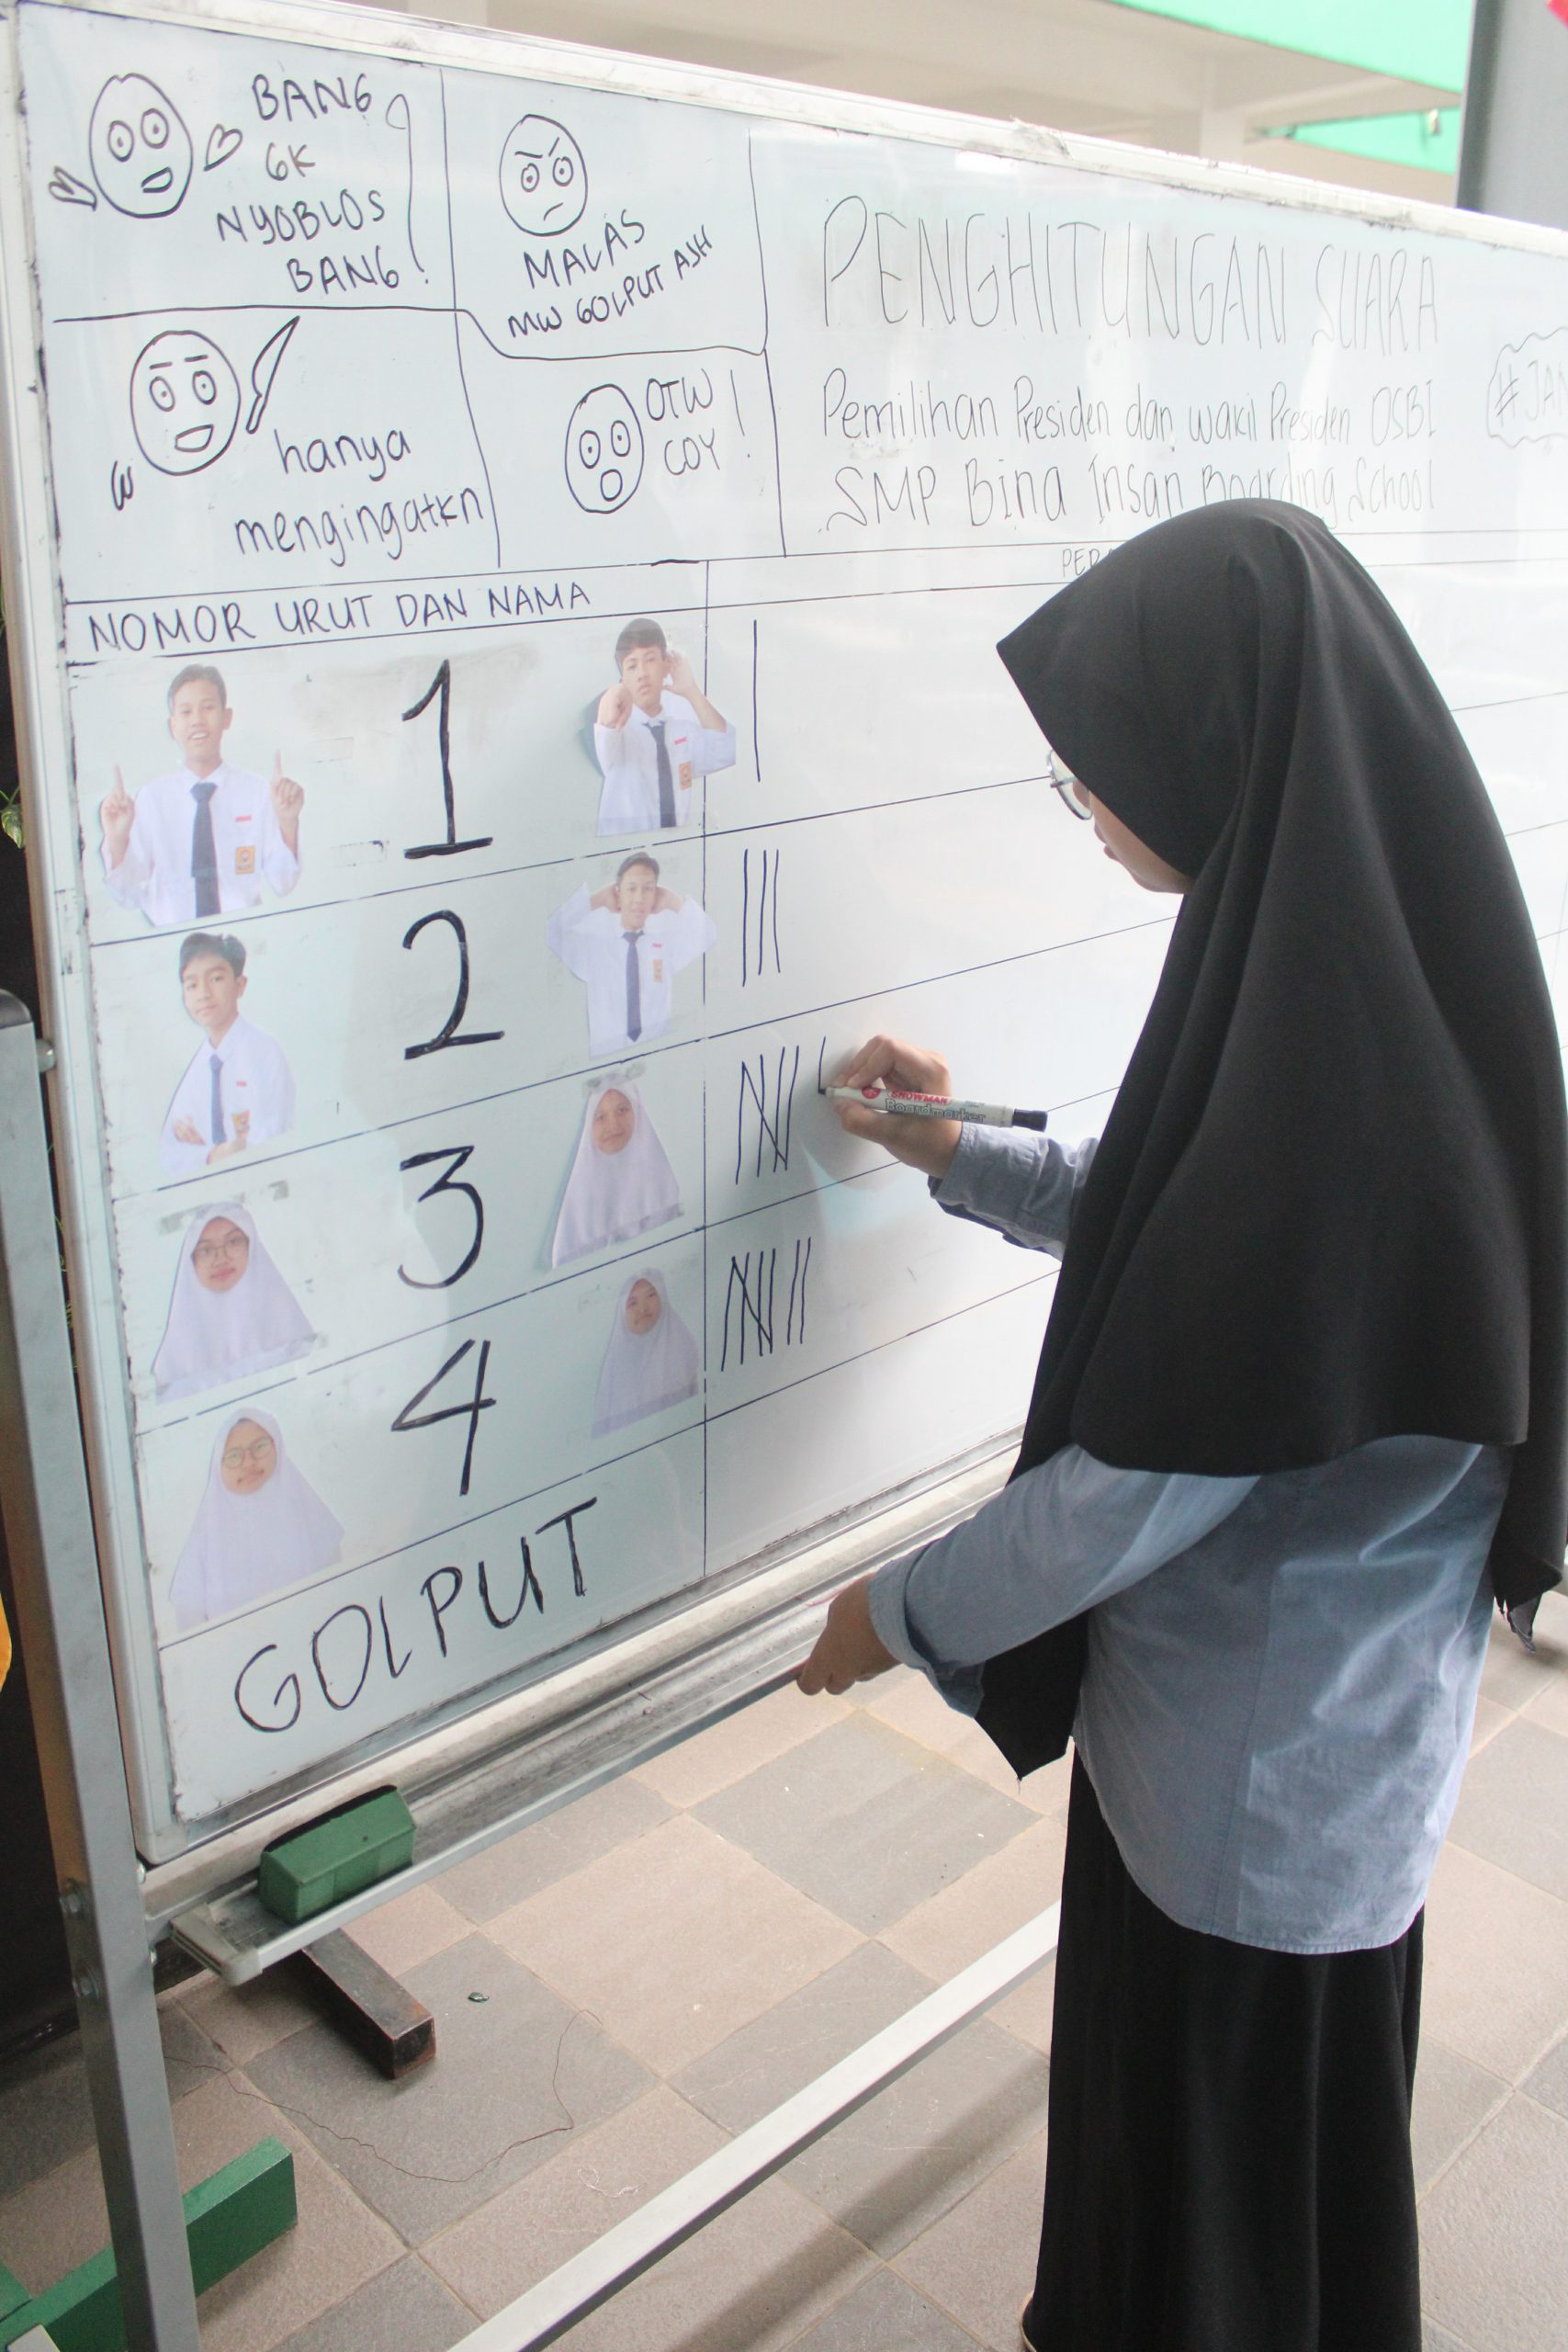 BANG
GK
NYOBLOS
BANG!
MALAS
MW GOLPUT ASH
hanya
mengingatkn
OTW
COY!
PENGHITUNGAN SUARA
Pemilihan Presiden dan wakil Presiden OSBI
SMP Bina Insan Boarding School
NOMOR URUT DAN NAMA
1
2
3
4
GOLPUT
SNOWMAN
Boardmarker